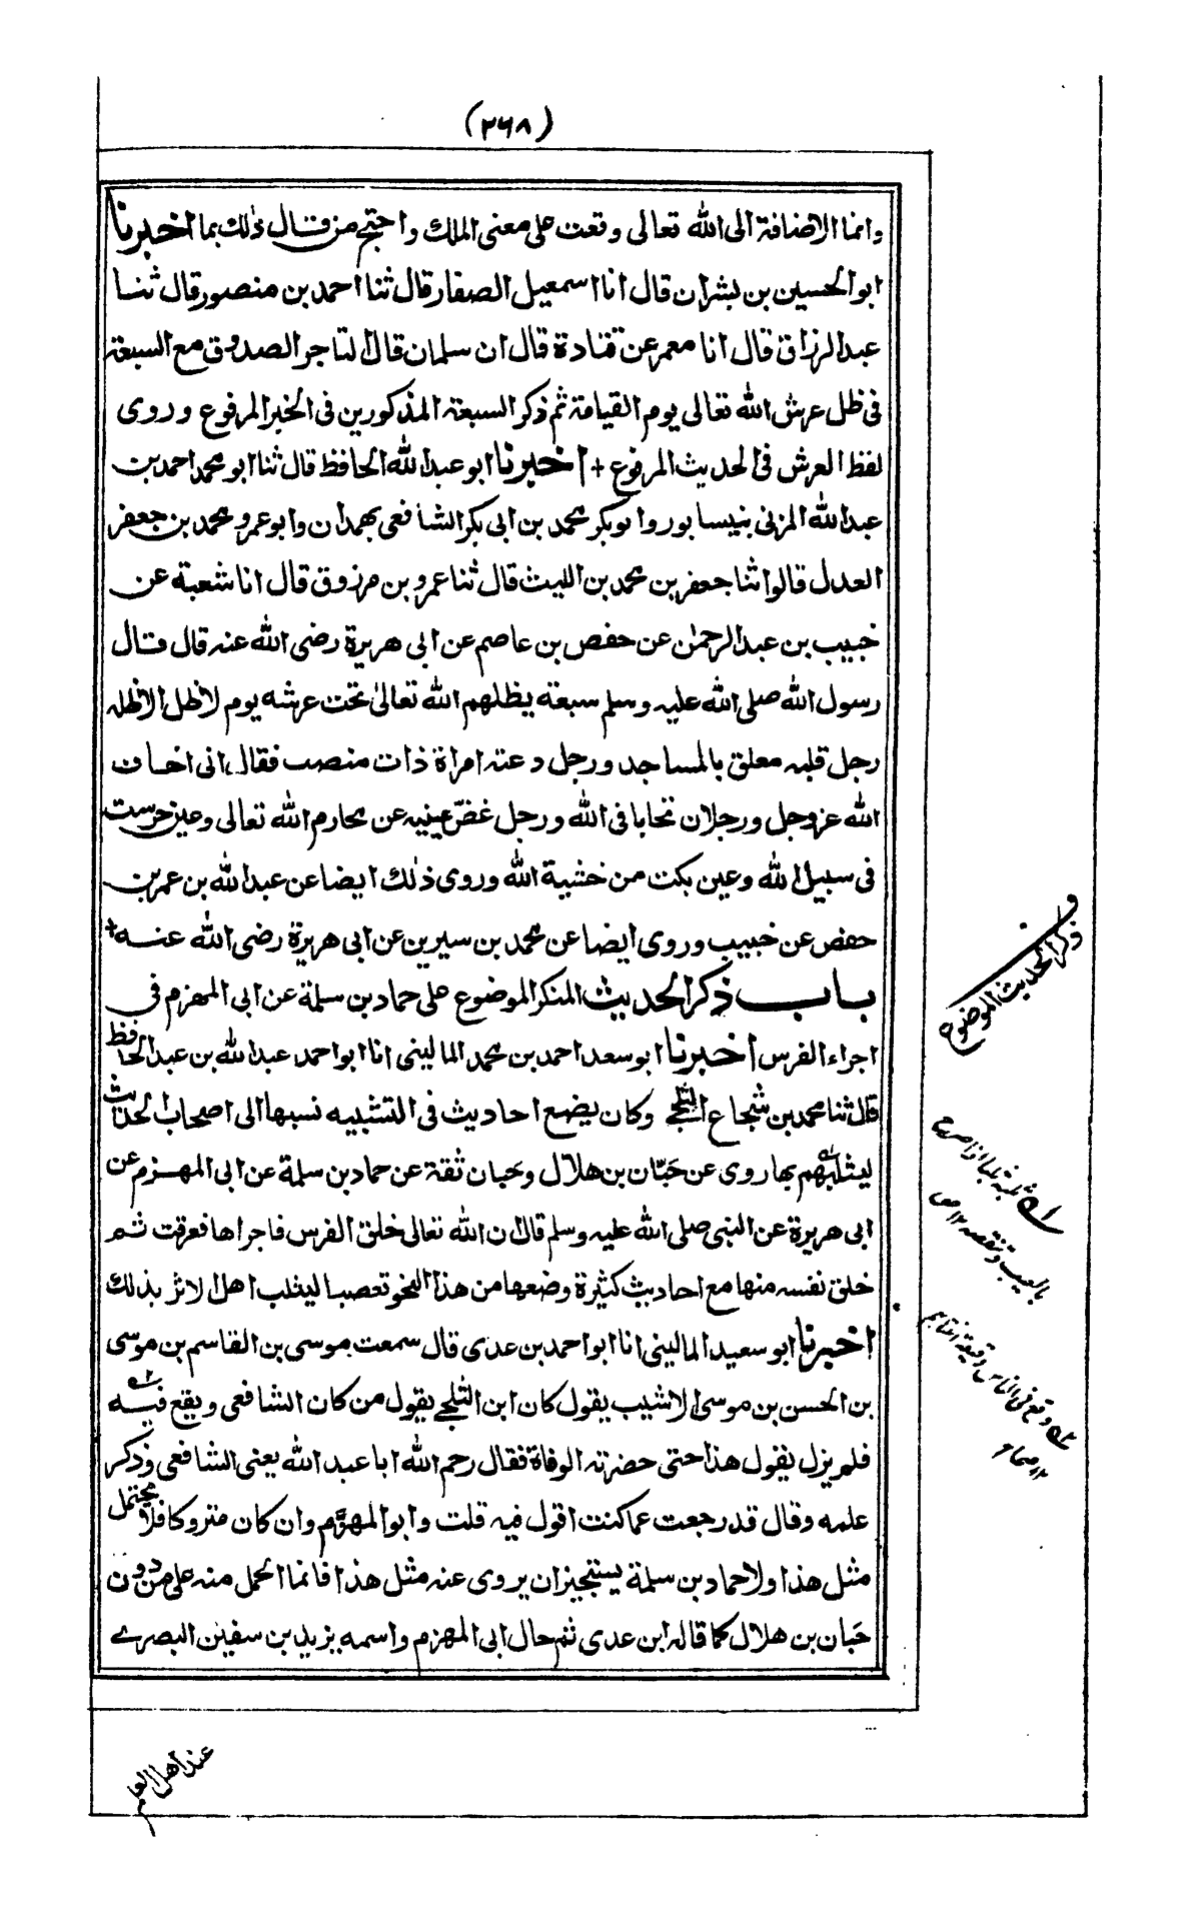 (٢٦٨)
وانما الاضافة الى الله تعالى وقعت على معنى الملك واحتج من قال ذلك بما اخبرنا
ابو الحسين بن بشران قال انا اسمعيل الصفار قال ثنا احمد بن منصور قال ثنا
عبد الرزاق قال انا معمر عن قتادة قال ان سلمان قال التاجر الصدوق مع السبعة
فى ظل عرش الله تعالى يوم القيامة ثم ذكر السبعة المذكورين فى الخبر المرفوع وروى
لفظ العرش فى الحديث المرفوع + اخبرنا ابو عبد الله الحافظ قال ثنا ابو محمد احمد بن
عبد الله المزنى بنيسابور وابوبكر محمد بن ابى بكر الشافعى بهمدان وابو عمرو محمد بن جعفر
العدل قالوا ثنا جعفر بن محمد بن الليث قال ثنا عمرو بن مرزوق قال انا شعبة عن
خبيب بن عبد الرحمٰن عن حفص بن عاصم عن ابى هريرة رضى الله عنه قال قال
رسول الله صلى الله عليه وسلم سبعة يظلهم الله تعالىٰ تحت عرشه يوم لا ظل الا ظله
رجل قلبه معلق بالمساجد ورجل دعته امراة ذات منصب فقال انى اخاف
الله عزوجل ورجلان تحابا فى الله ورجل غضّ عينيه عن محارم الله تعالى وعين حرست
فى سبيل الله وعين بكت من خشية الله وروى ذٰلك ايضا عن عبد الله بن عمر بن
حفص عن خبيب وروى ايضا عن محمد بن سيرين عن ابى هريرة رضى الله عنه +
باب ذكر الحديث المنكر الموضوع على حماد بن سلمة عن ابى المهزم فى
اجراء الفرس اخبرنا ابو سعد احمد بن محمد المالينى انا ابو احمد عبد الله بن عبد الحافظ
قال ثنا محمد بن شجاع الثلجى وكان يضع احاديث فى التشبيه نسبها الى اصحاب الحديث
ليثلبهم بها روى عن حَبّان بن هلال وحبان ثقة عن حماد بن سلمة عن ابى المهزم عن
ابى هريرة عن النبى صلى الله عليه وسلم قال ان الله تعالى خلق الفرس فاجراها فعرقت ثم
خلق نفسه منها مع احاديث كثيرة وضعها من هذا النحو تعصبا ليثلب اهل الاثر بذلك
اخبرنا ابو سعيد المالينى انا ابو احمد بن عدى قال سمعت موسى بن القاسم بن موسى
بن الحسن بن موسى الاشيب يقول كان ابن الثلجى يقول من كان الشافعى ويقع فيه
فلم يزل يقول هذا حتى حضرته الوفاة فقال رحم الله ابا عبد الله يعنى الشافعى وذكر
علمه وقال قد رجعت عما كنت اقول فيه قلت وابو المهزَّم وان كان متروكا فلا يحتمل
مثل هذا ولا حماد بن سلمة يستجيز ان يروى عنه مثل هذا فانما الحمل منه على من دون
حَبان بن هلال كما قاله ابن عدى ثم حال ابى المهزم واسمه يزيد بن سفيٰن البصرى
ذكر الحديث الموضوع
بالعيب وتنقصه ١٢ ص
وقع فى الناس
عند اهل العلم